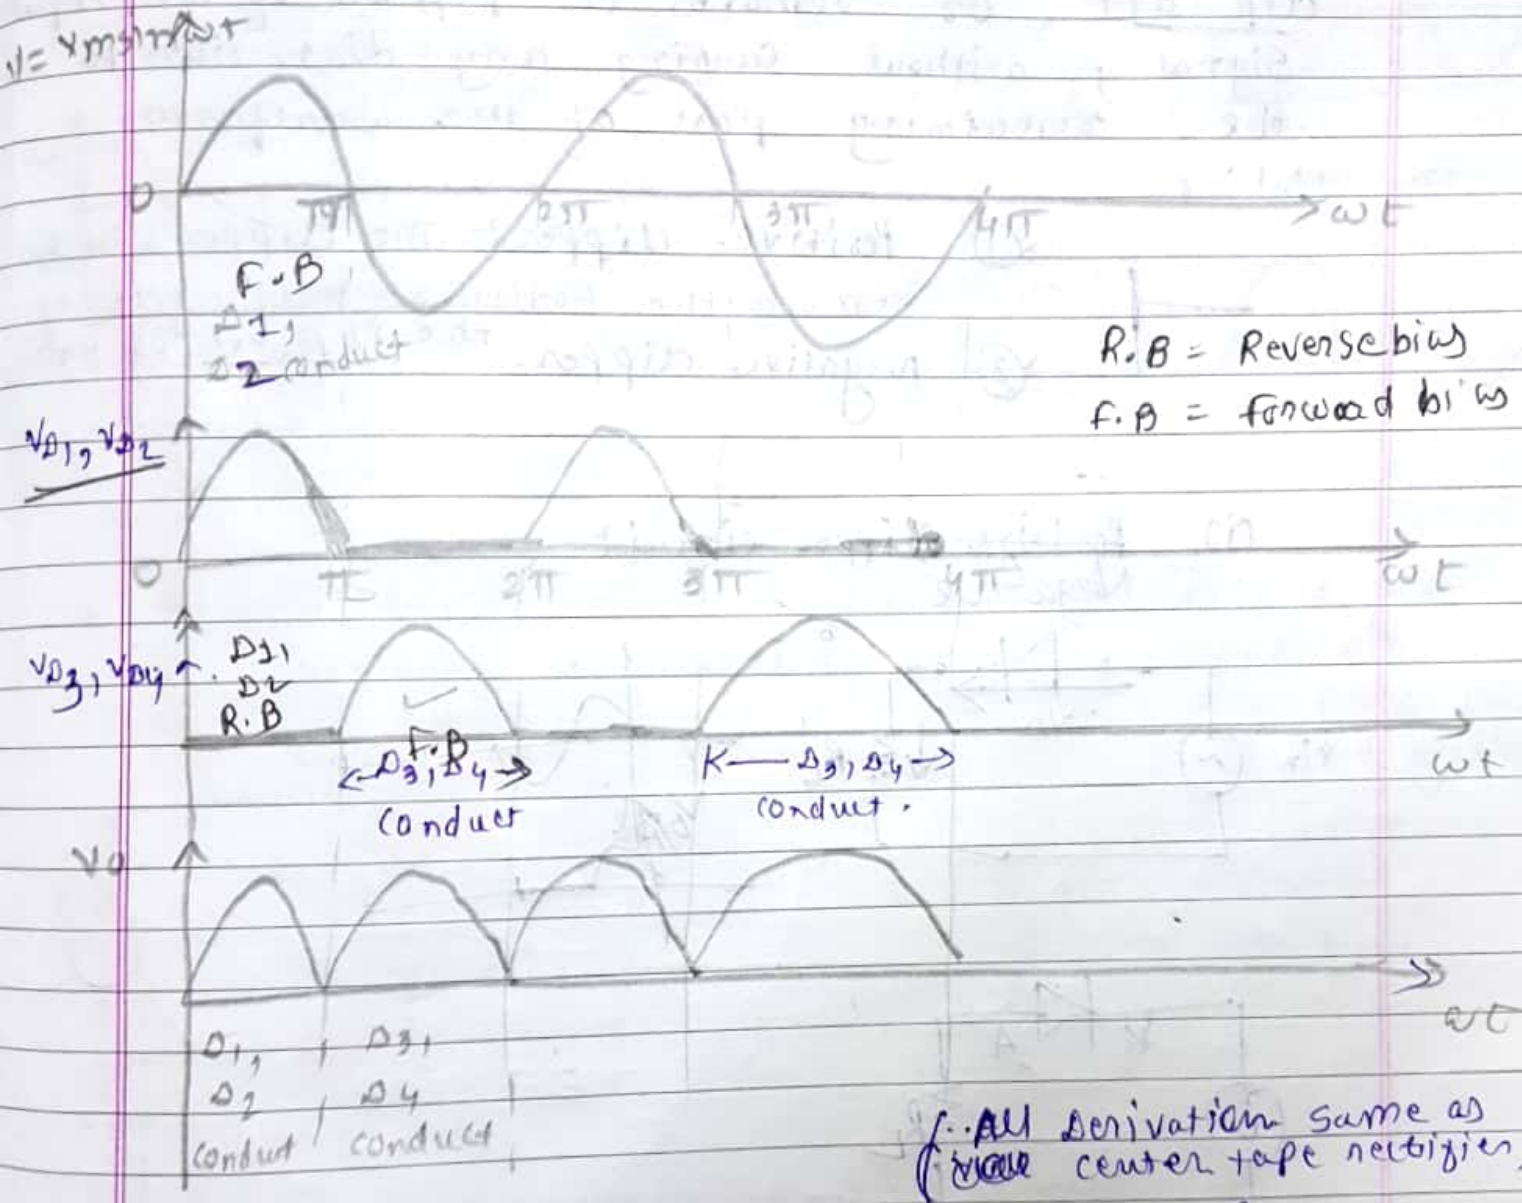 V= Vmsinωt
0
π
2π
3π
4π
ωt
F.B
D1,
D2 conduct
R.B = Reverse bias
F.B = forward bias
VD1, VD2
0
π
2π
3π
4π
ωt
VD3, VD4
D1,
D2
R.B
F.B
D3, D4
conduct
D3, D4
conduct.
ωt
Vo
ωt
D1, D3,
D2 D4
conduct conduct
All Derivation same as
center tape rectifier